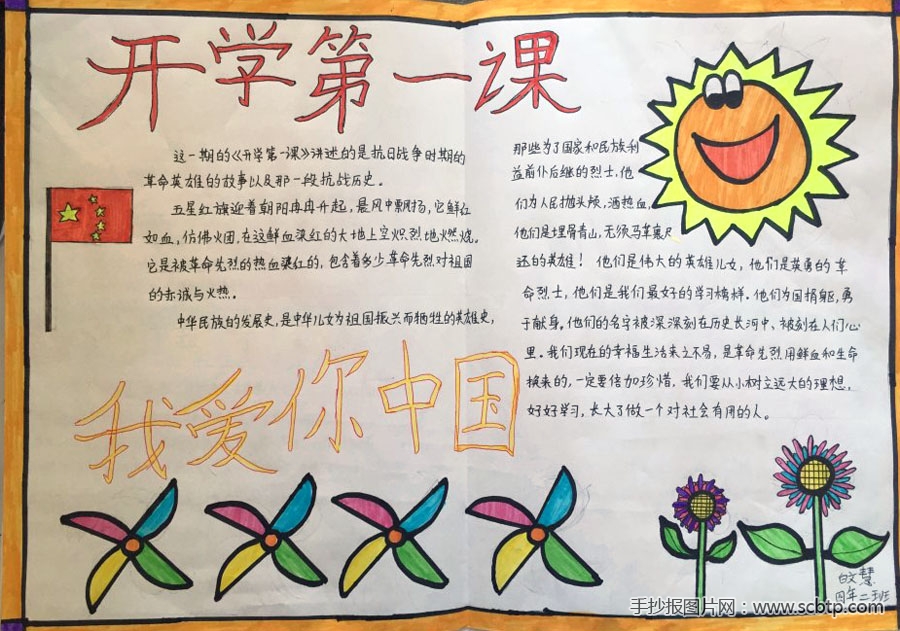 开学第一课
这一期的《开学第一课》讲述的是抗日战争时期的
革命英雄的故事以及那一段抗战历史。
五星红旗迎着朝阳冉冉升起，晨风中飘扬，它鲜红
如血，仿佛火团，在这鲜血染红的大地上空炽烈地燃烧。
它是被革命先烈的热血染红的，包含着多少革命先烈对祖国
的赤诚与火热。
中华民族的发展史，是中华儿女为祖国振兴而牺牲的英雄史，
那些为了国家和民族利
益前仆后继的烈士，他
们为人民抛头颅，洒热血，
他们是埋骨青山，无须马革裹尸
还的英雄！他们是伟大的英雄儿女，他们是英勇的革
命烈士，他们是我们最好的学习榜样。他们为国捐躯，勇
于献身。他们的名字被深深刻在历史长河中、被刻在人们心
里。我们现在的幸福生活来之不易，是革命先烈用鲜血和生命
换来的，一定要倍加珍惜，我们要从小树立远大的理想，
好好学习，长大了做一个对社会有用的人。
我爱你中国
慧
四年二班
手抄报图片网：www.scbtp.com